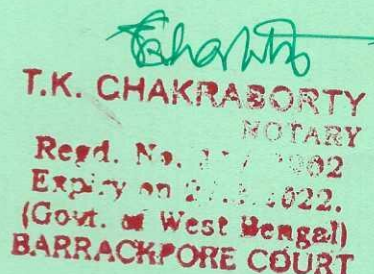 T.K. CHAKRABORTY
NOTARY
Regd. No.
Expiry on
(Govt. of West Bengal)
BARRACKPORE COURT